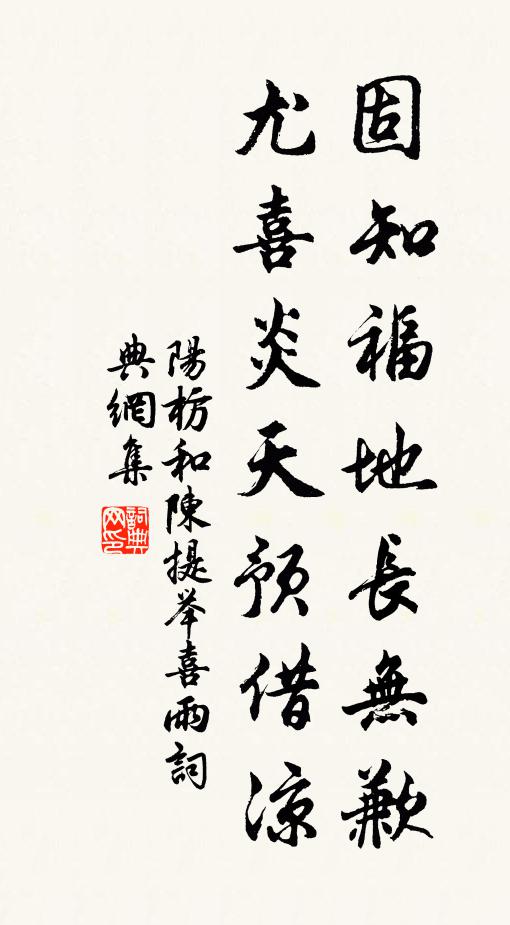 固知福地長無歉
尤喜炎天預借涼
陽枋和陳提举喜雨詞
典網集
詞典
网印